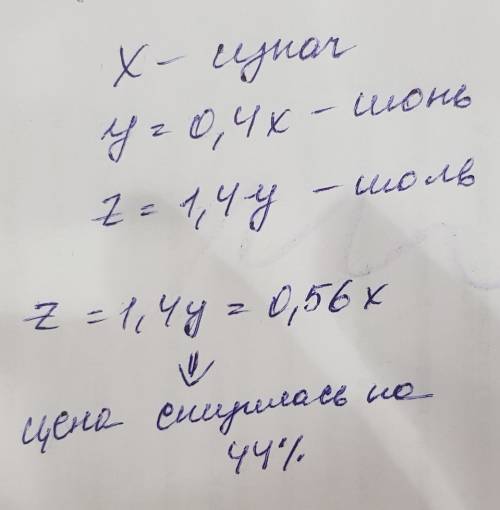 x – изнач
y = 0,4x – июнь
z = 1,4y – июль
z = 1,4y = 0,56x
⇓
цена снизилась на
44%